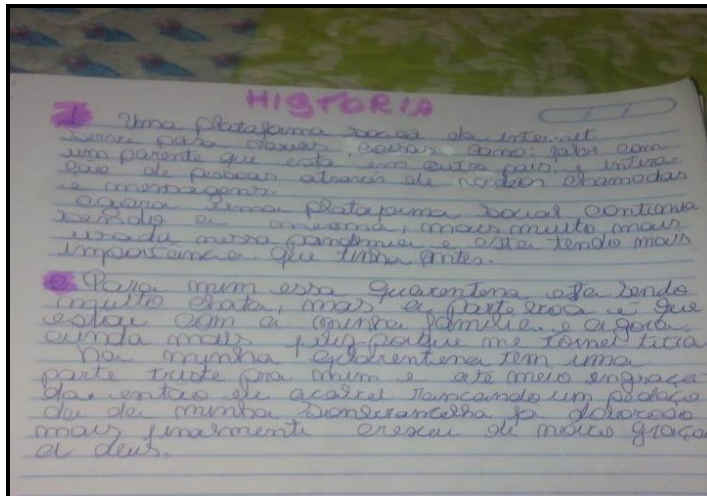 HISTORIA
1 Uma plataforma social da internet
serve para várias coisas como: falar com
um parente que esta em outro país, e intera-
ção de pessoas através de vídeos chamadas
e mensagens.
agora uma plataforma social continua
sendo a mesma, mais muito mais
usada nessa pandemia e esta tendo mais
importancia que tinha antes.
Para mim essa quarentena esta sendo
muito chata, mas a parte boa é que
estou com a minha família e agora
ainda mais feliz porque me tornei titia
na minha quarentena tem uma
parte triste pra mim e até meio engraça
da, então eu acabei rancando um pedaço
da da minha sombrancelha
mais finalmente cresceu de novo graça
a deus.